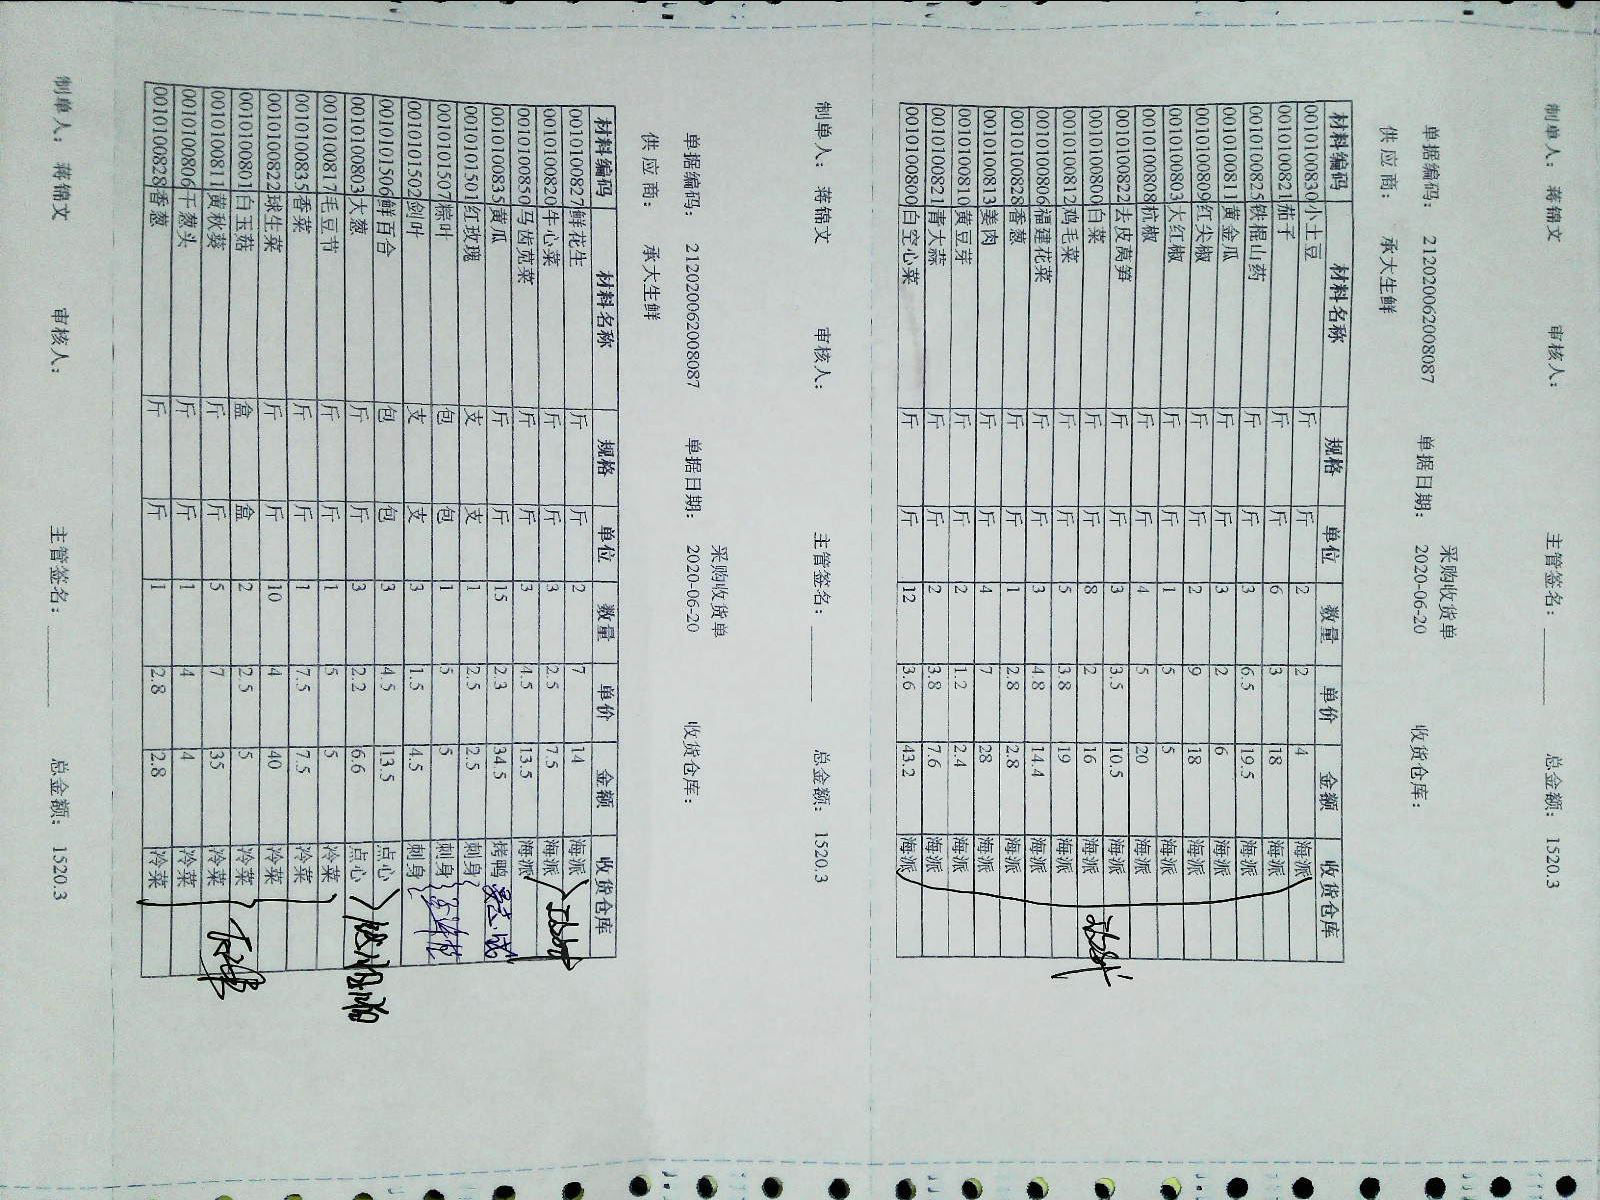 制单人: 蒋锦文 审核人: 主管签名: 总金额: 1520.3
采购收货单
单据编码: 2120200620008087 单据日期: 2020-06-20 收货仓库:
供 应 商: 承大生鲜
材料编码 材料名称 规格 单位 数量 单价 金额 收货仓库
0010100830 小土豆 斤 斤 2 2 4 海派
0010100821 茄子 斤 斤 6 3 18 海派
0010100825 铁棍山药 斤 斤 3 6.5 19.5 海派
0010100811 黄金瓜 斤 斤 3 2 6 海派
0010100809 红尖椒 斤 斤 2 9 18 海派
0010100803 大红椒 斤 斤 1 5 5 海派
0010100808 杭椒 斤 斤 4 5 20 海派
0010100822 去皮莴笋 斤 斤 3 3.5 10.5 海派
0010100800 白菜 斤 斤 8 2 16 海派
0010100812 鸡毛菜 斤 斤 5 3.8 19 海派
0010100806 福建花菜 斤 斤 3 4.8 14.4 海派
0010100828 香葱 斤 斤 1 2.8 2.8 海派
0010100813 姜肉 斤 斤 4 7 28 海派
0010100810 黄豆芽 斤 斤 2 1.2 2.4 海派
0010100821 青大蒜 斤 斤 2 3.8 7.6 海派
0010100800 白空心菜 斤 斤 12 3.6 43.2 海派
制单人: 蒋锦文 审核人: 主管签名: 总金额: 1520.3
采购收货单
单据编码: 2120200620008087 单据日期: 2020-06-20 收货仓库:
供 应 商: 承大生鲜
材料编码 材料名称 规格 单位 数量 单价 金额 收货仓库
0010100827 鲜花生 斤 斤 2 7 14 海派
0010100820 牛心菜 斤 斤 3 2.5 7.5 海派
0010100850 马齿苋菜 斤 斤 3 4.5 13.5 海派
0010100835 黄瓜 斤 斤 15 2.3 34.5 烤鸭
0010101501 红玫瑰 支 支 1 2.5 2.5 刺身
0010101507 粽叶 包 包 1 5 5 刺身
0010101502 剑叶 支 支 3 1.5 4.5 刺身
0010101506 鲜百合 包 包 3 4.5 13.5 点心
0010100803 大葱 斤 斤 3 2.2 6.6 点心
0010100817 毛豆节 斤 斤 1 5 5 冷菜
0010100835 香菜 斤 斤 1 7.5 7.5 冷菜
0010100822 球生菜 斤 斤 10 4 40 冷菜
0010100801 白玉菇 盒 盒 2 2.5 5 冷菜
0010100811 黄秋葵 斤 斤 5 7 35 冷菜
0010100806 干葱头 斤 斤 1 4 4 冷菜
0010100828 香葱 斤 斤 1 2.8 2.8 冷菜
制单人: 蒋锦文 审核人: 主管签名: 总金额: 1520.3